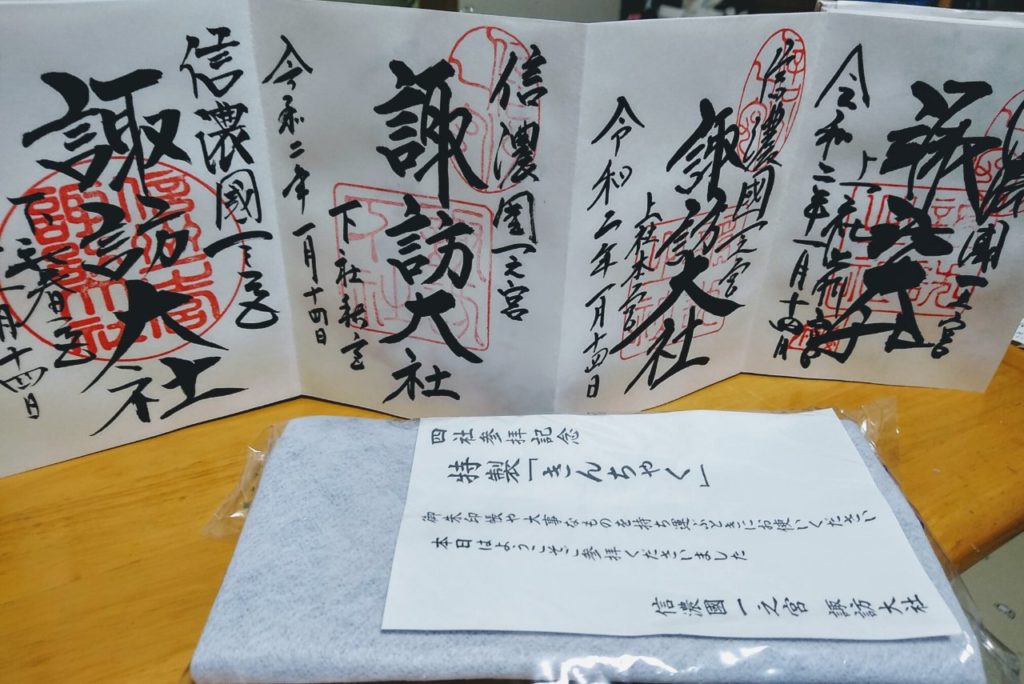 信濃國一之宮
諏訪大社
下社春宮
信濃國一之宮
諏訪大社
下社秋宮
令和二年一月十四日
信濃國一之宮
諏訪大社
上社本宮
令和二年一月十四日
諏訪大社
令和二年一月十四日
四社参拝記念
特製「きんちゃく」
御朱印帳や大事なものを持ち運ぶときにお使いください
本日はようこそご参拝くださいました
信濃國一之宮 諏訪大社